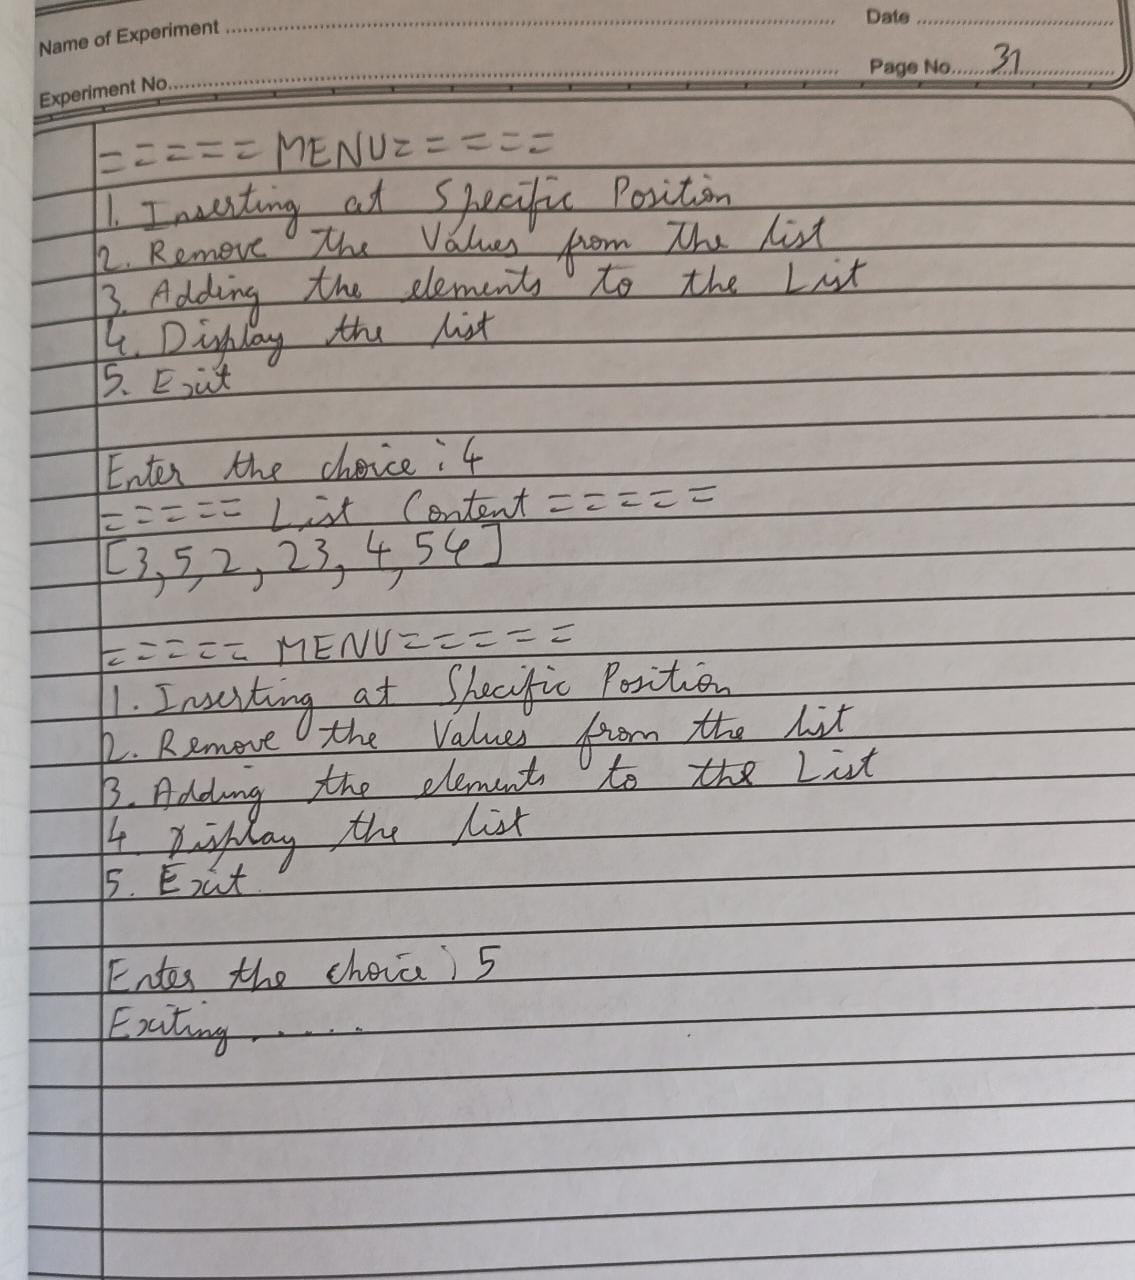 Name of Experiment
Date
Experiment No.
Page No. 31
===== MENU=====
1. Inserting at Specific Position
2. Remove the Values from the list
3. Adding the elements to the List
4. Display the list
5. Exit
Enter the choice : 4
===== List Content =====
[3, 5, 2, 23, 4, 54]
===== MENU=====
1. Inserting at Specific Position
2. Remove the Values from the list
3. Adding the elements to the List
4 Display the list
5. Exit
Enter the choice : 5
Exiting .....